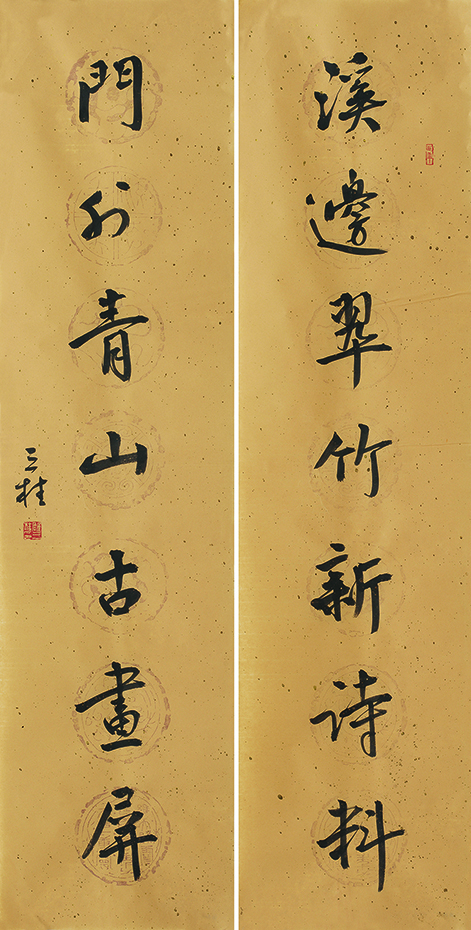 溪邊翠竹新诗料
門外青山古畫屏
三桂